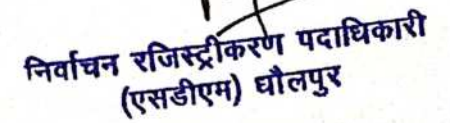 निर्वाचन रजिस्ट्रीकरण पदाधिकारी
(एसडीएम) धौलपुर